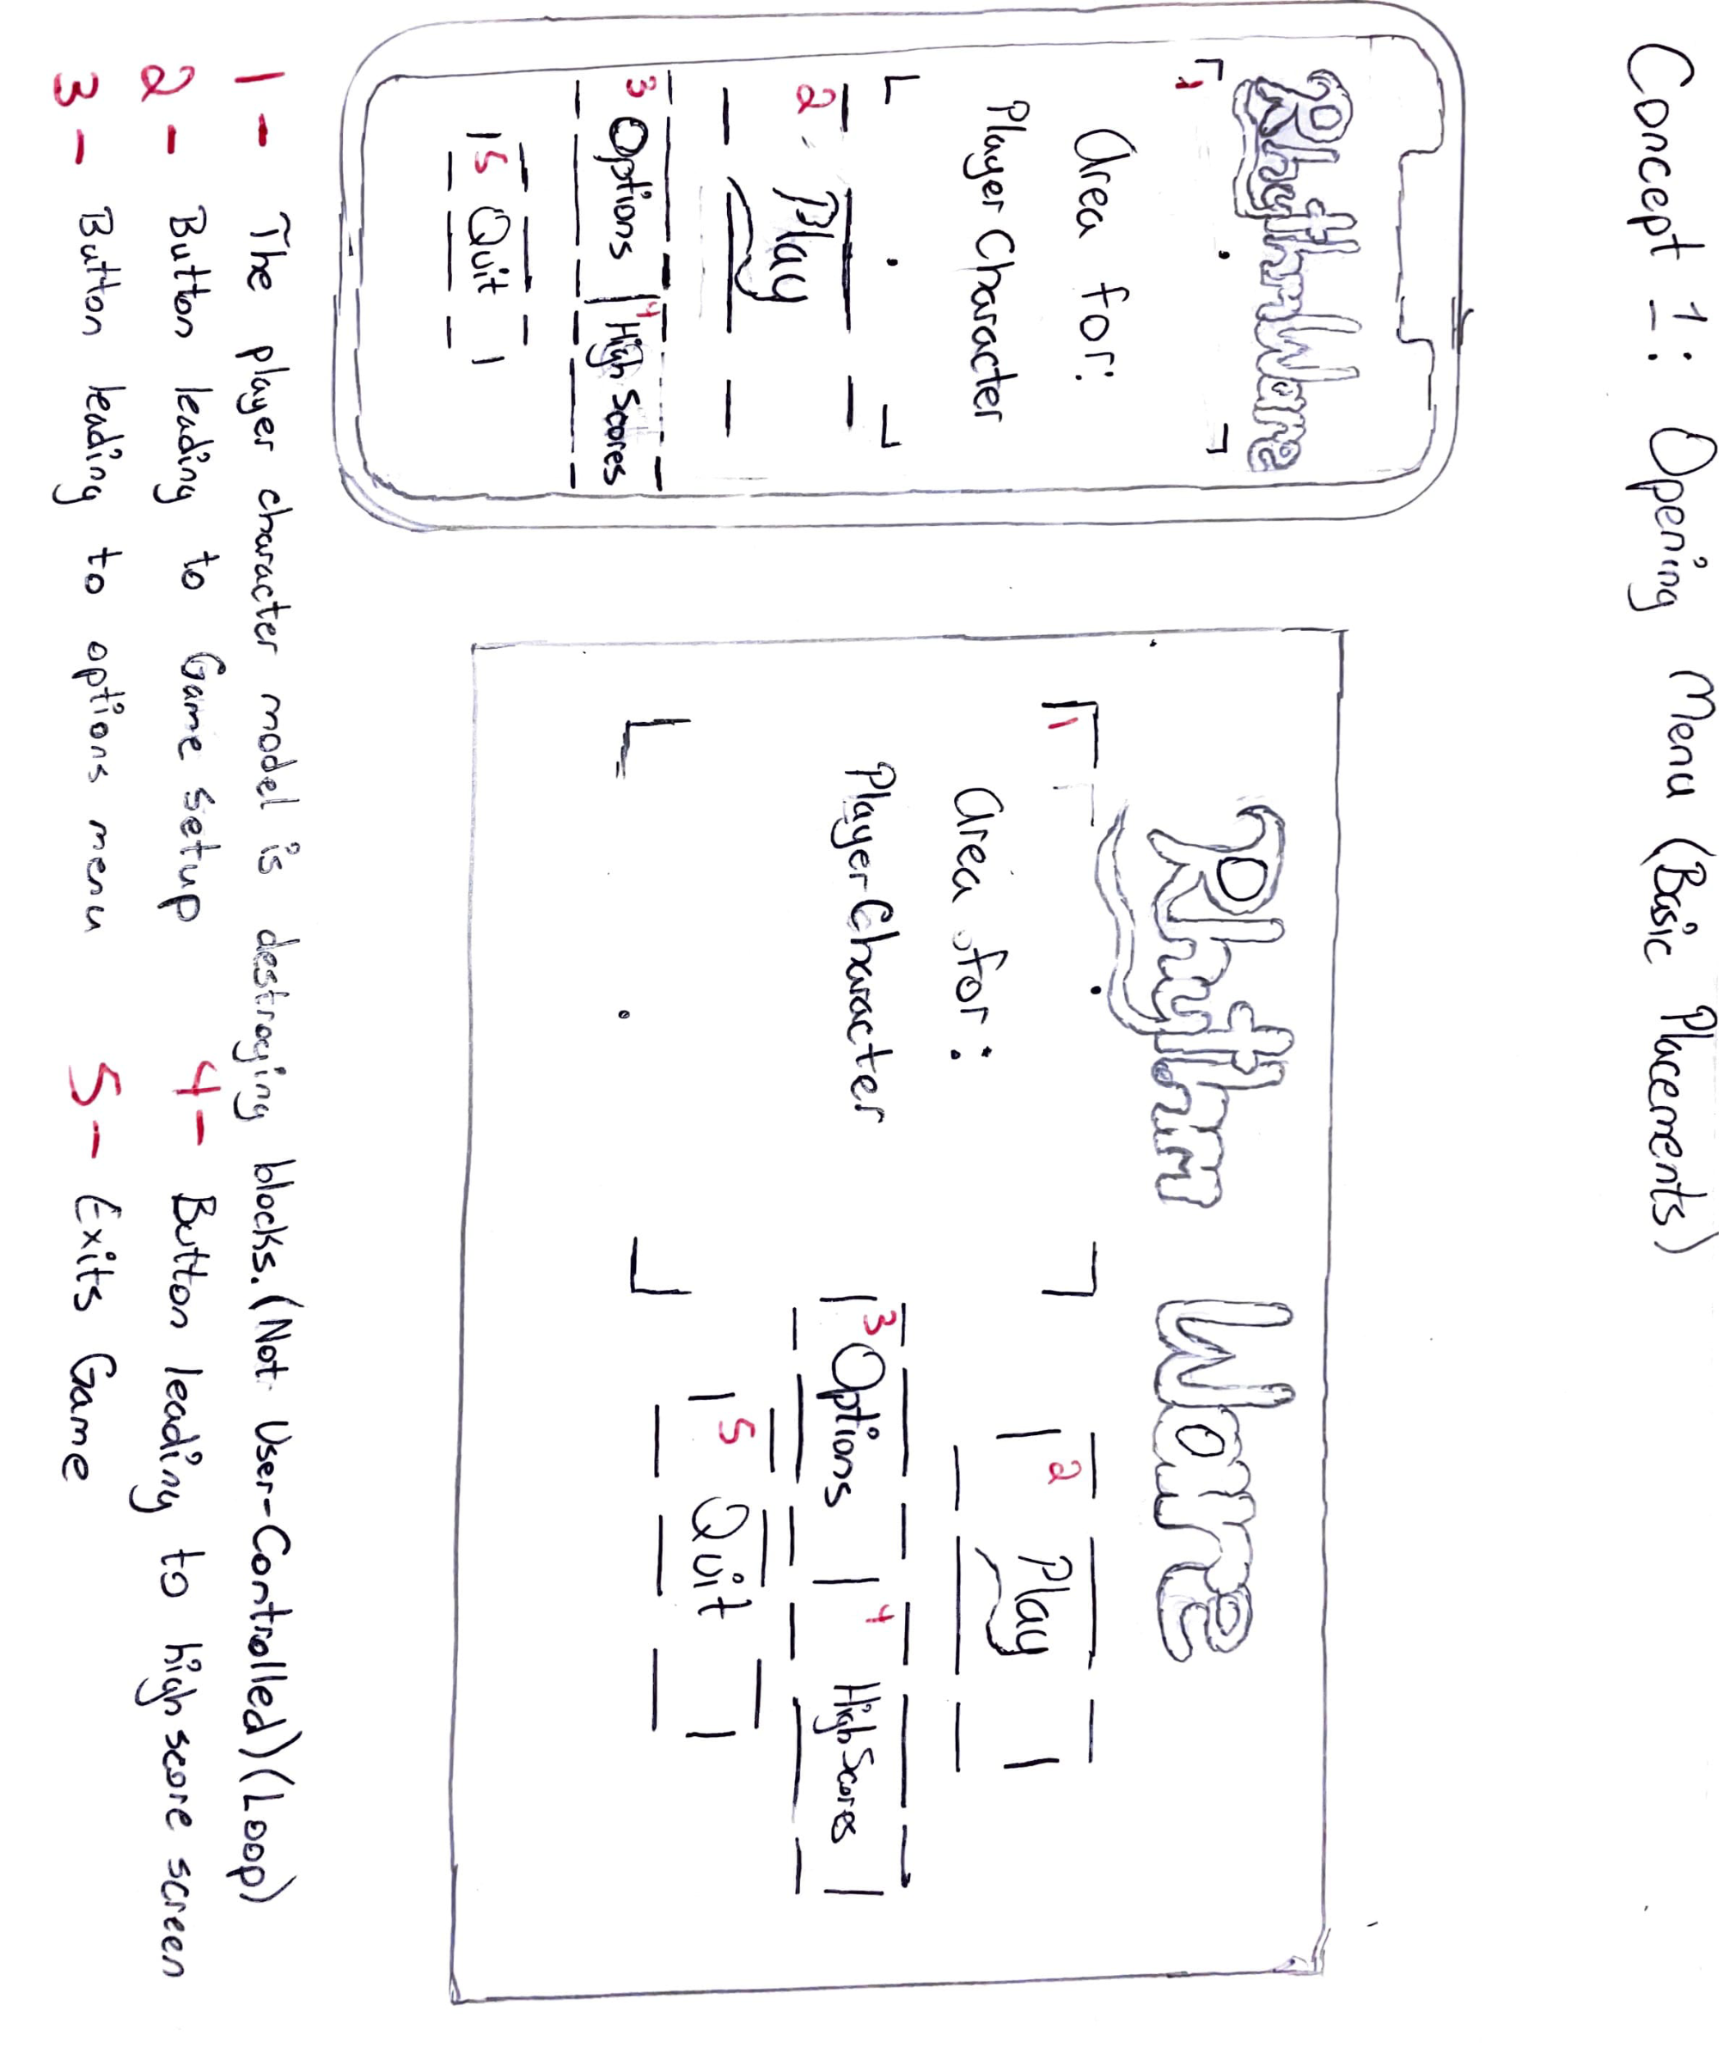 Concept 1: Opening Menu (Basic Placements)
RhythmWare
1
Area for:
Player Character
2
Play
3 Options
4 High Scores
5 Quit
Rhythm Ware
1
Area for:
Player Character
2
Play
3 Options
4 High Scores
5 Quit
1 - The player character model is destroying blocks. (Not User-Controlled) (Loop)
2 - Button leading to Game setup
3 - Button leading to options menu
4 - Button leading to high score screen
5 - Exits Game